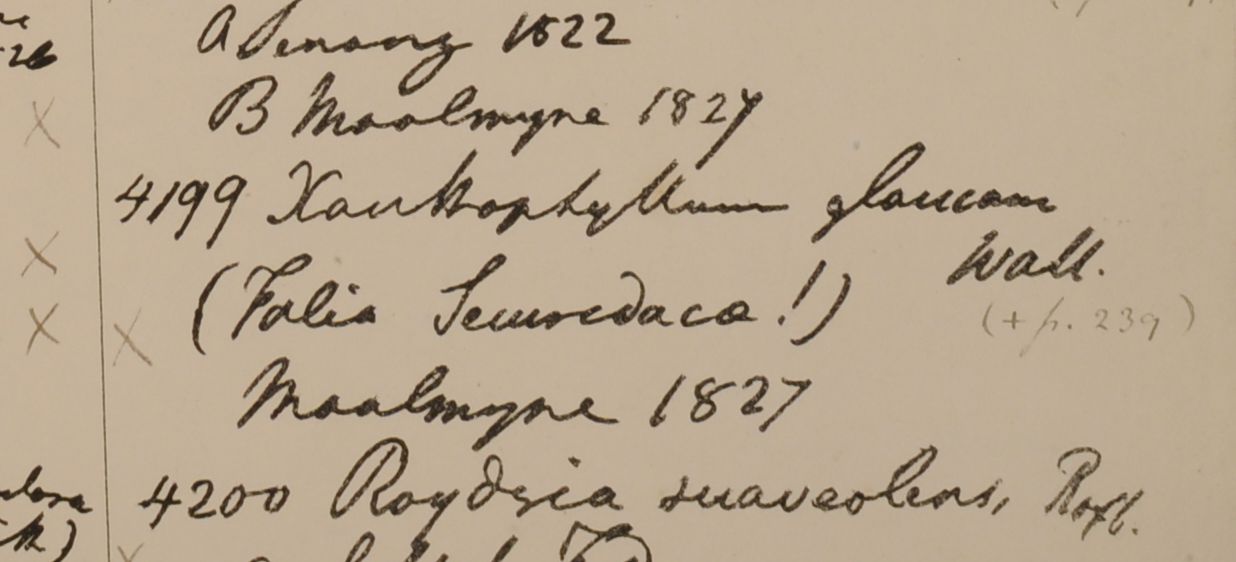 A Penang 1822
B Moolmyne 1827
4199 Xanthophyllum glaucum
Wall.
(Folia Securidaca !)
(+ p. 239)
Moalmyne 1827
4200 Roydsia suaveolens, Roxb.